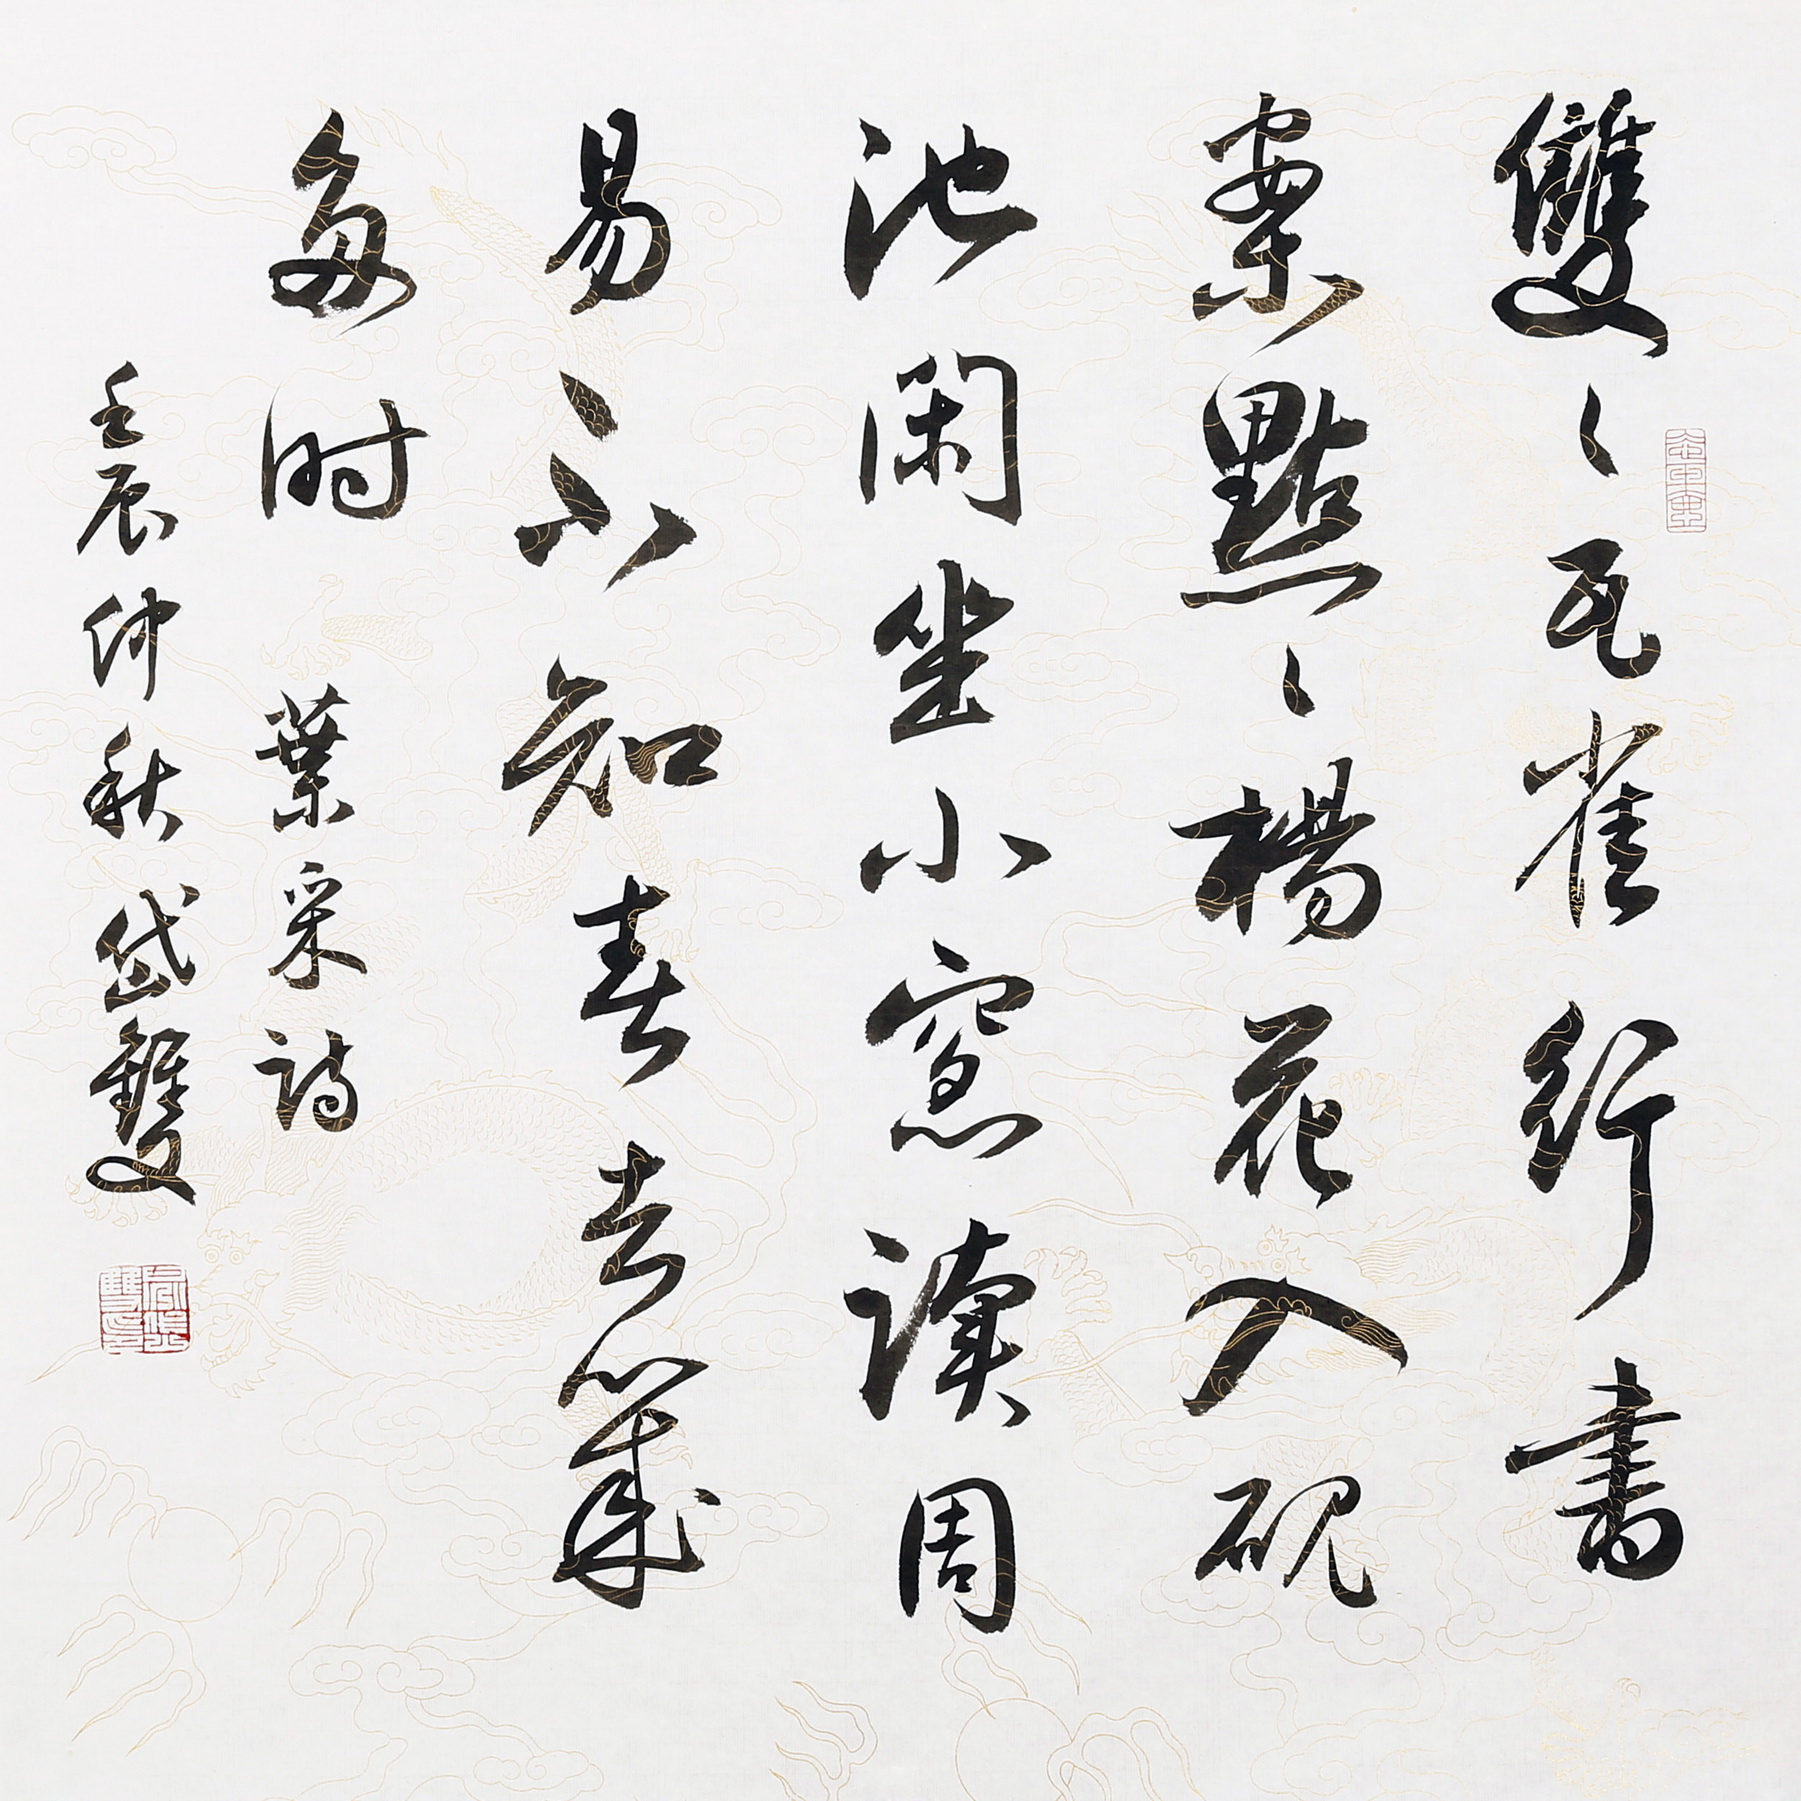 雙〻瓦雀行書
案點〻楊花入硯
池閑坐小窓讀周
易不知春去幾
多时 葉采詩
壬辰仲秋岱雙